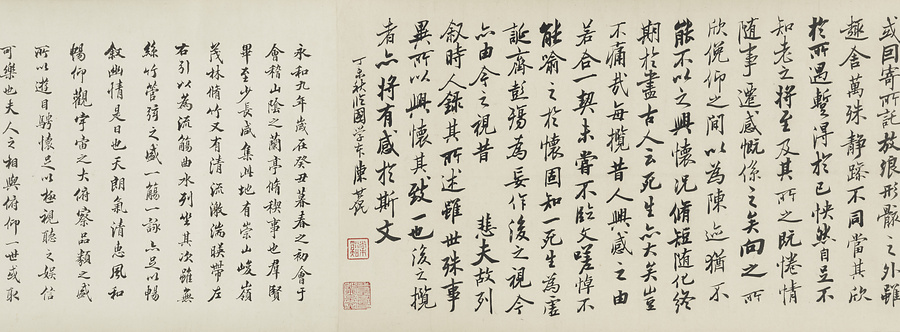 或因寄所託放浪形骸之外雖
趣舍萬殊靜躁不同當其欣
於所遇暫得於己怏然自足不
知老之將至及其所之既惓情
隨事遷感慨係之矣向之所
欣俛仰之間以為陳迹猶不
能不以之興懷況脩短隨化終
期於盡古人云死生亦大矣豈
不痛哉每攬昔人興感之由
若合一契未嘗不臨文嗟悼不
能喻之於懷固知一死生為虛
誕齊彭殤為妄作後之視今
亦由今之視昔 悲夫故列
敘時人錄其所述雖世殊事
異所以興懷其致一也後之攬
者亦將有感於斯文
秋臨國學本陳
永和九年歲在癸丑暮春之初會于
會稽山陰之蘭亭脩稧事也群賢
畢至少長咸集此地有崇山峻嶺
茂林脩竹又有清流激湍暎帶左
右引以為流觴曲水列坐其次雖無
絲竹管弦之盛一觴一詠亦足以暢
敘幽情是日也天朗氣清惠風和
暢仰觀宇宙之大俯察品類之盛
所以遊目騁懷足以極視聽之娛信
可樂也夫人之相與俯仰一世或取